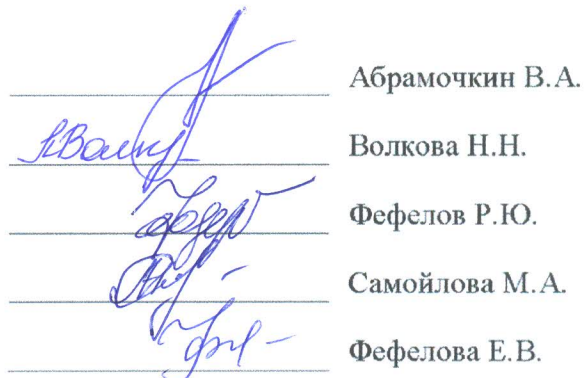 Абрамочкин В.А.
Волкова Н.Н.
Фефелов Р.Ю.
Самойлова М.А.
Фефелова Е.В.